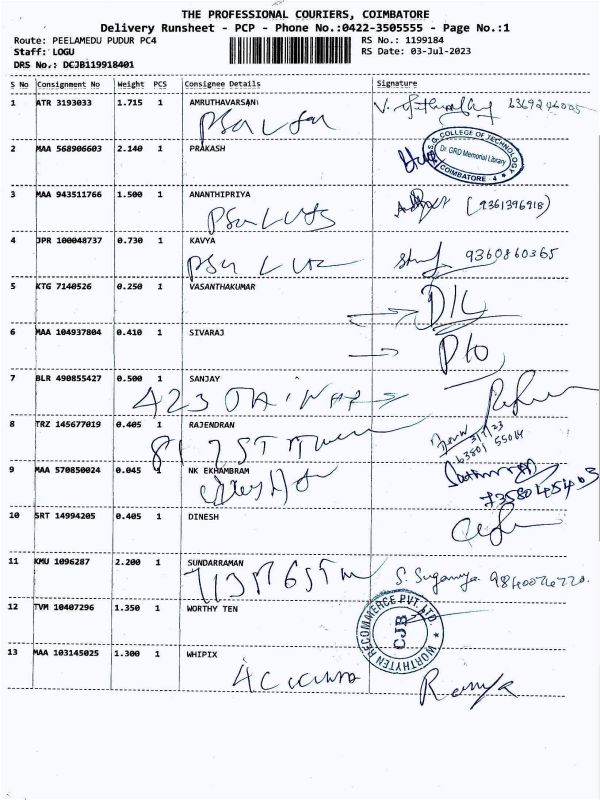 THE PROFESSIONAL COURIERS, COIMBATORE
Delivery Runsheet - PCP - Phone No.:0422-3505555 - Page No.:1
Route: PEELAMEDU PUDUR PC4 RS No.: 1199184
Staff: LOGU RS Date: 03-Jul-2023
DRS No.: DCJB119918401
S No Consignment No Weight PCS Consignee Details Signature
1 ATR 3193033 1.715 1 AMRUTHAVARSANI
2 MAA 568906603 2.140 1 PRAKASH
S.G. COLLEGE OF TECHNOLOGY
Dr. GRD Memorial Library
COIMBATORE - 4
3 MAA 943511766 1.500 1 ANANTHIPRIYA
(9361396918)
4 JPR 100048737 0.730 1 KAVYA
9360860365
5 KTG 7140526 0.250 1 VASANTHAKUMAR
D/L
6 MAA 104937804 0.410 1 SIVARAJ
7 BLR 490855427 0.500 1 SANJAY
423
8 TRZ 145677019 0.405 1 RAJENDRAN
3/7/23
9 MAA 570850024 0.045 1 NK EKHAMBRAM
10 SRT 14994205 0.405 1 DINESH
11 KMU 1096287 2.200 1 SUNDARRAMAN
S. Suganya.
12 TVM 10407296 1.350 1 WORTHY TEN
WORTHYTEN RECOMMERCE PVT. LTD.
CJB
13 MAA 103145025 1.300 1 WHIPIX
Ramya